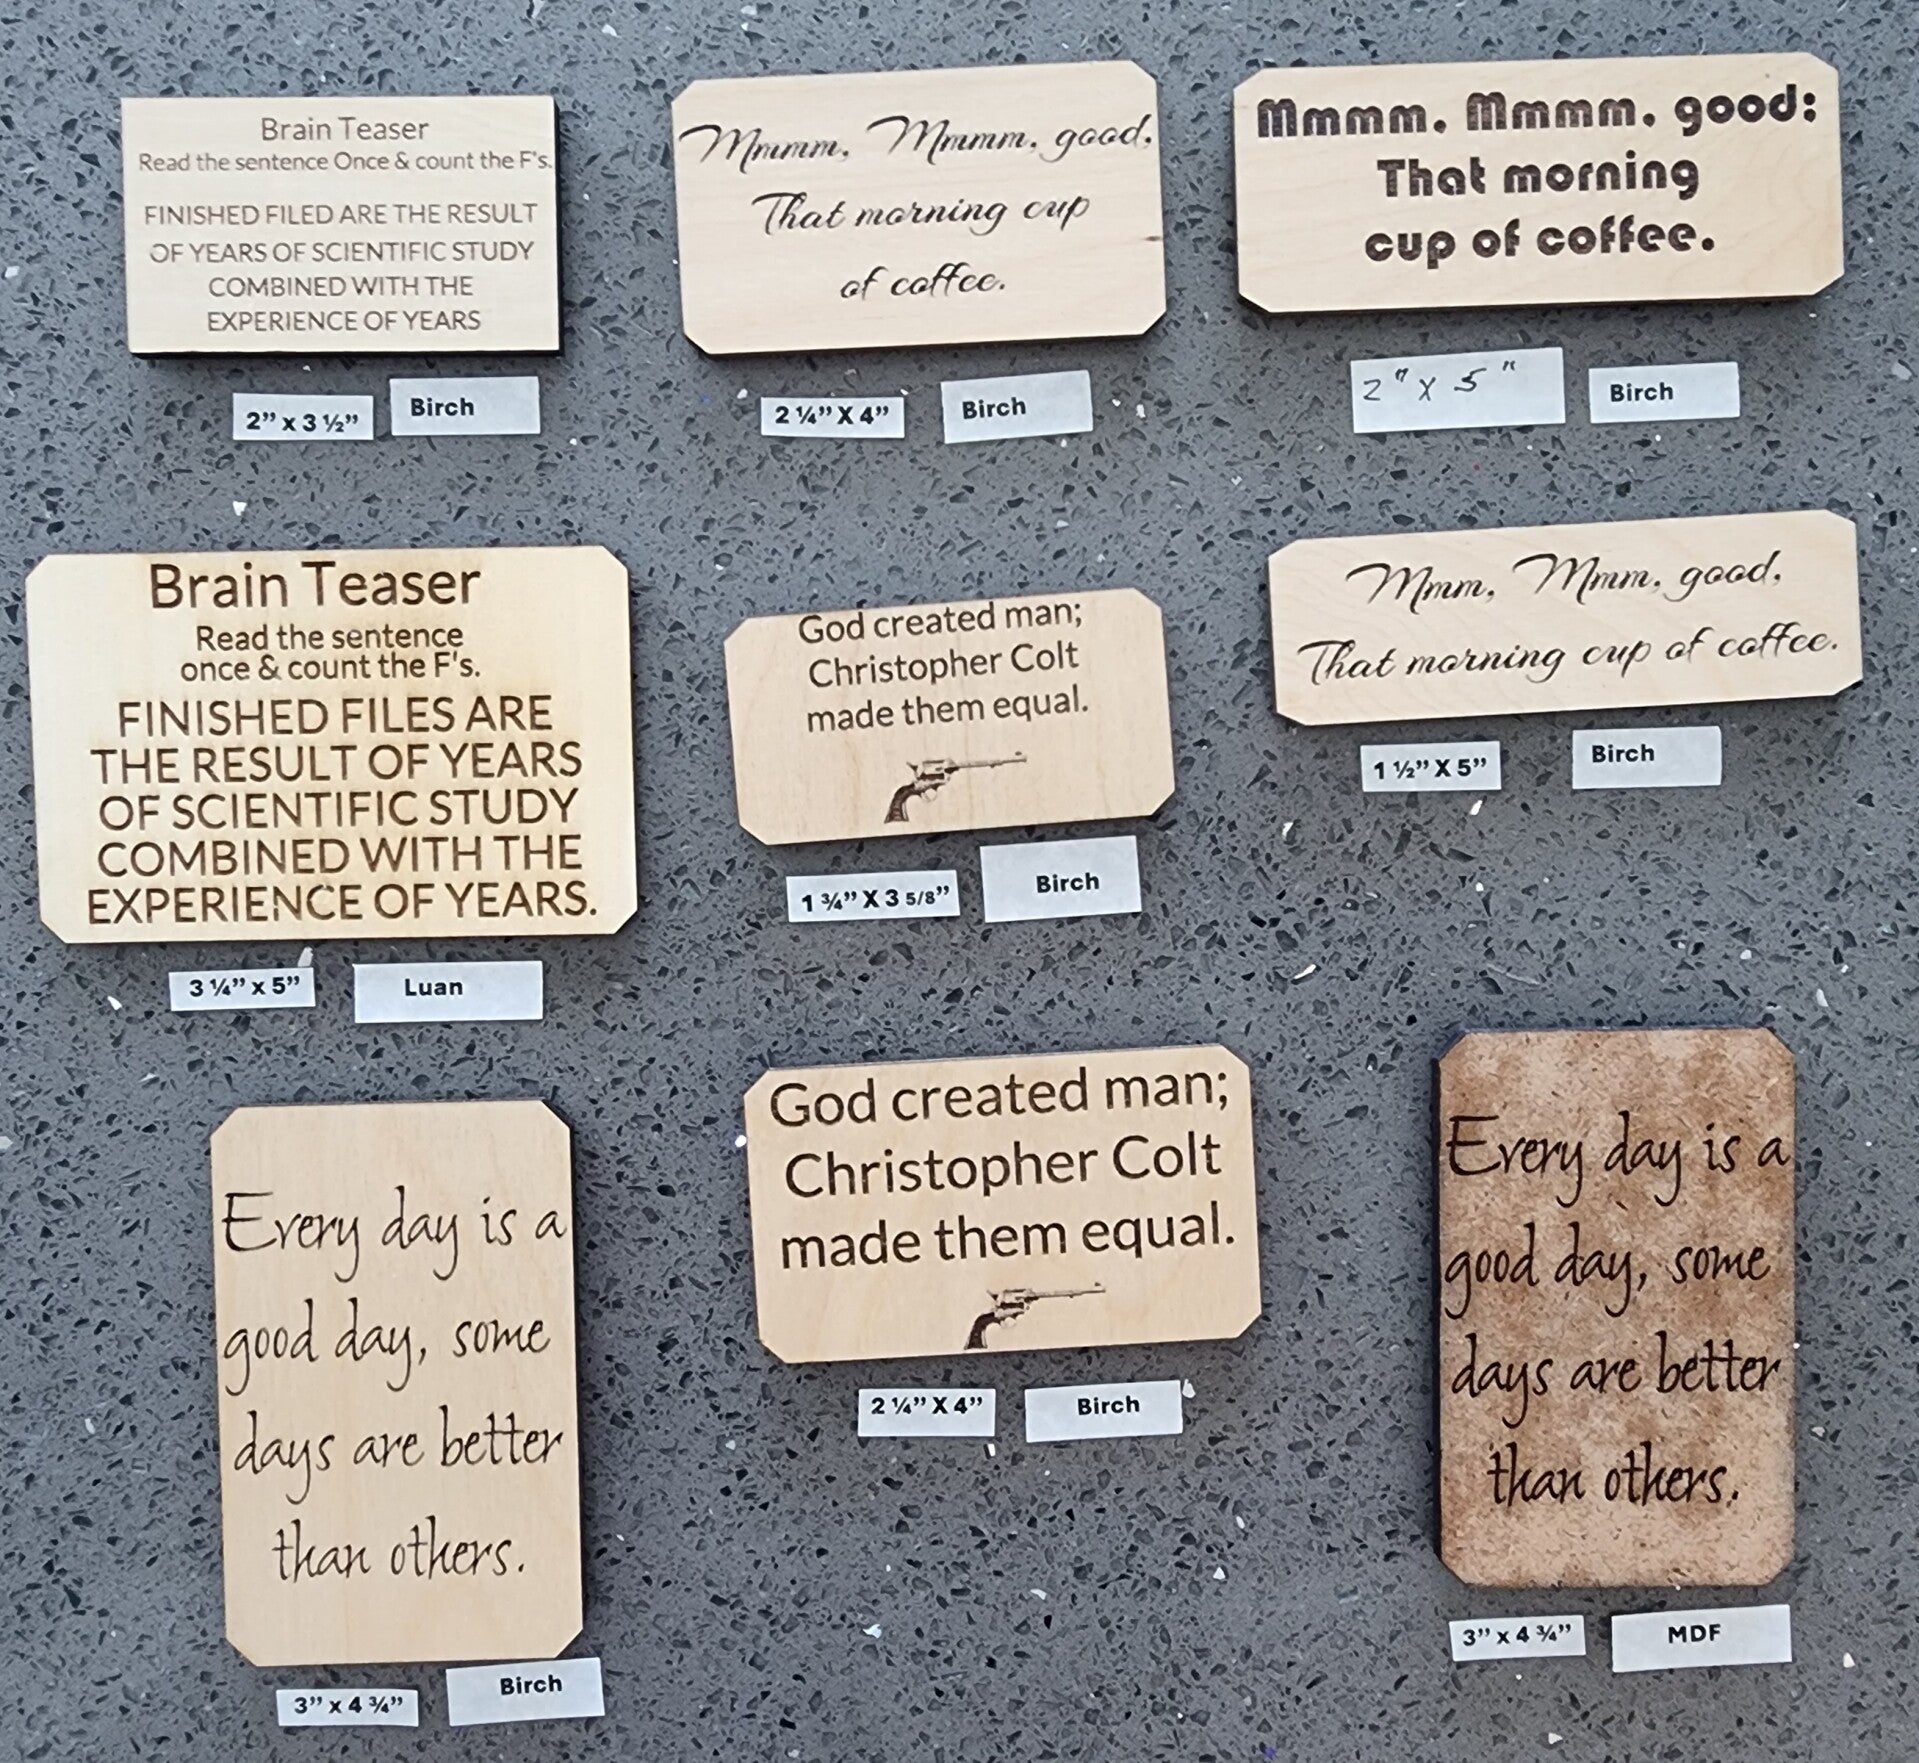 Brain Teaser
Read the sentence Once & count the F's.
FINISHED FILED ARE THE RESULT
OF YEARS OF SCIENTIFIC STUDY
COMBINED WITH THE
EXPERIENCE OF YEARS
2” x 3 ½”
Birch
Mmmm, Mmmm, good,
That morning cup
of coffee.
2 ¼” X 4”
Birch
Mmmm. Mmmm. good:
That morning
cup of coffee.
2" x 5"
Birch
Brain Teaser
Read the sentence
once & count the F's.
FINISHED FILES ARE
THE RESULT OF YEARS
OF SCIENTIFIC STUDY
COMBINED WITH THE
EXPERIENCE OF YEARS.
3 ¼” x 5”
Luan
God created man;
Christopher Colt
made them equal.
1 ¾” X 3 5/8”
Birch
Mmm, Mmm, good,
That morning cup of coffee.
1 ½” X 5”
Birch
Every day is a
good day, some
days are better
than others.
3” x 4 ¾”
Birch
God created man;
Christopher Colt
made them equal.
2 ¼” X 4”
Birch
Every day is a
good day, some
days are better
than others.
3” x 4 ¾”
MDF